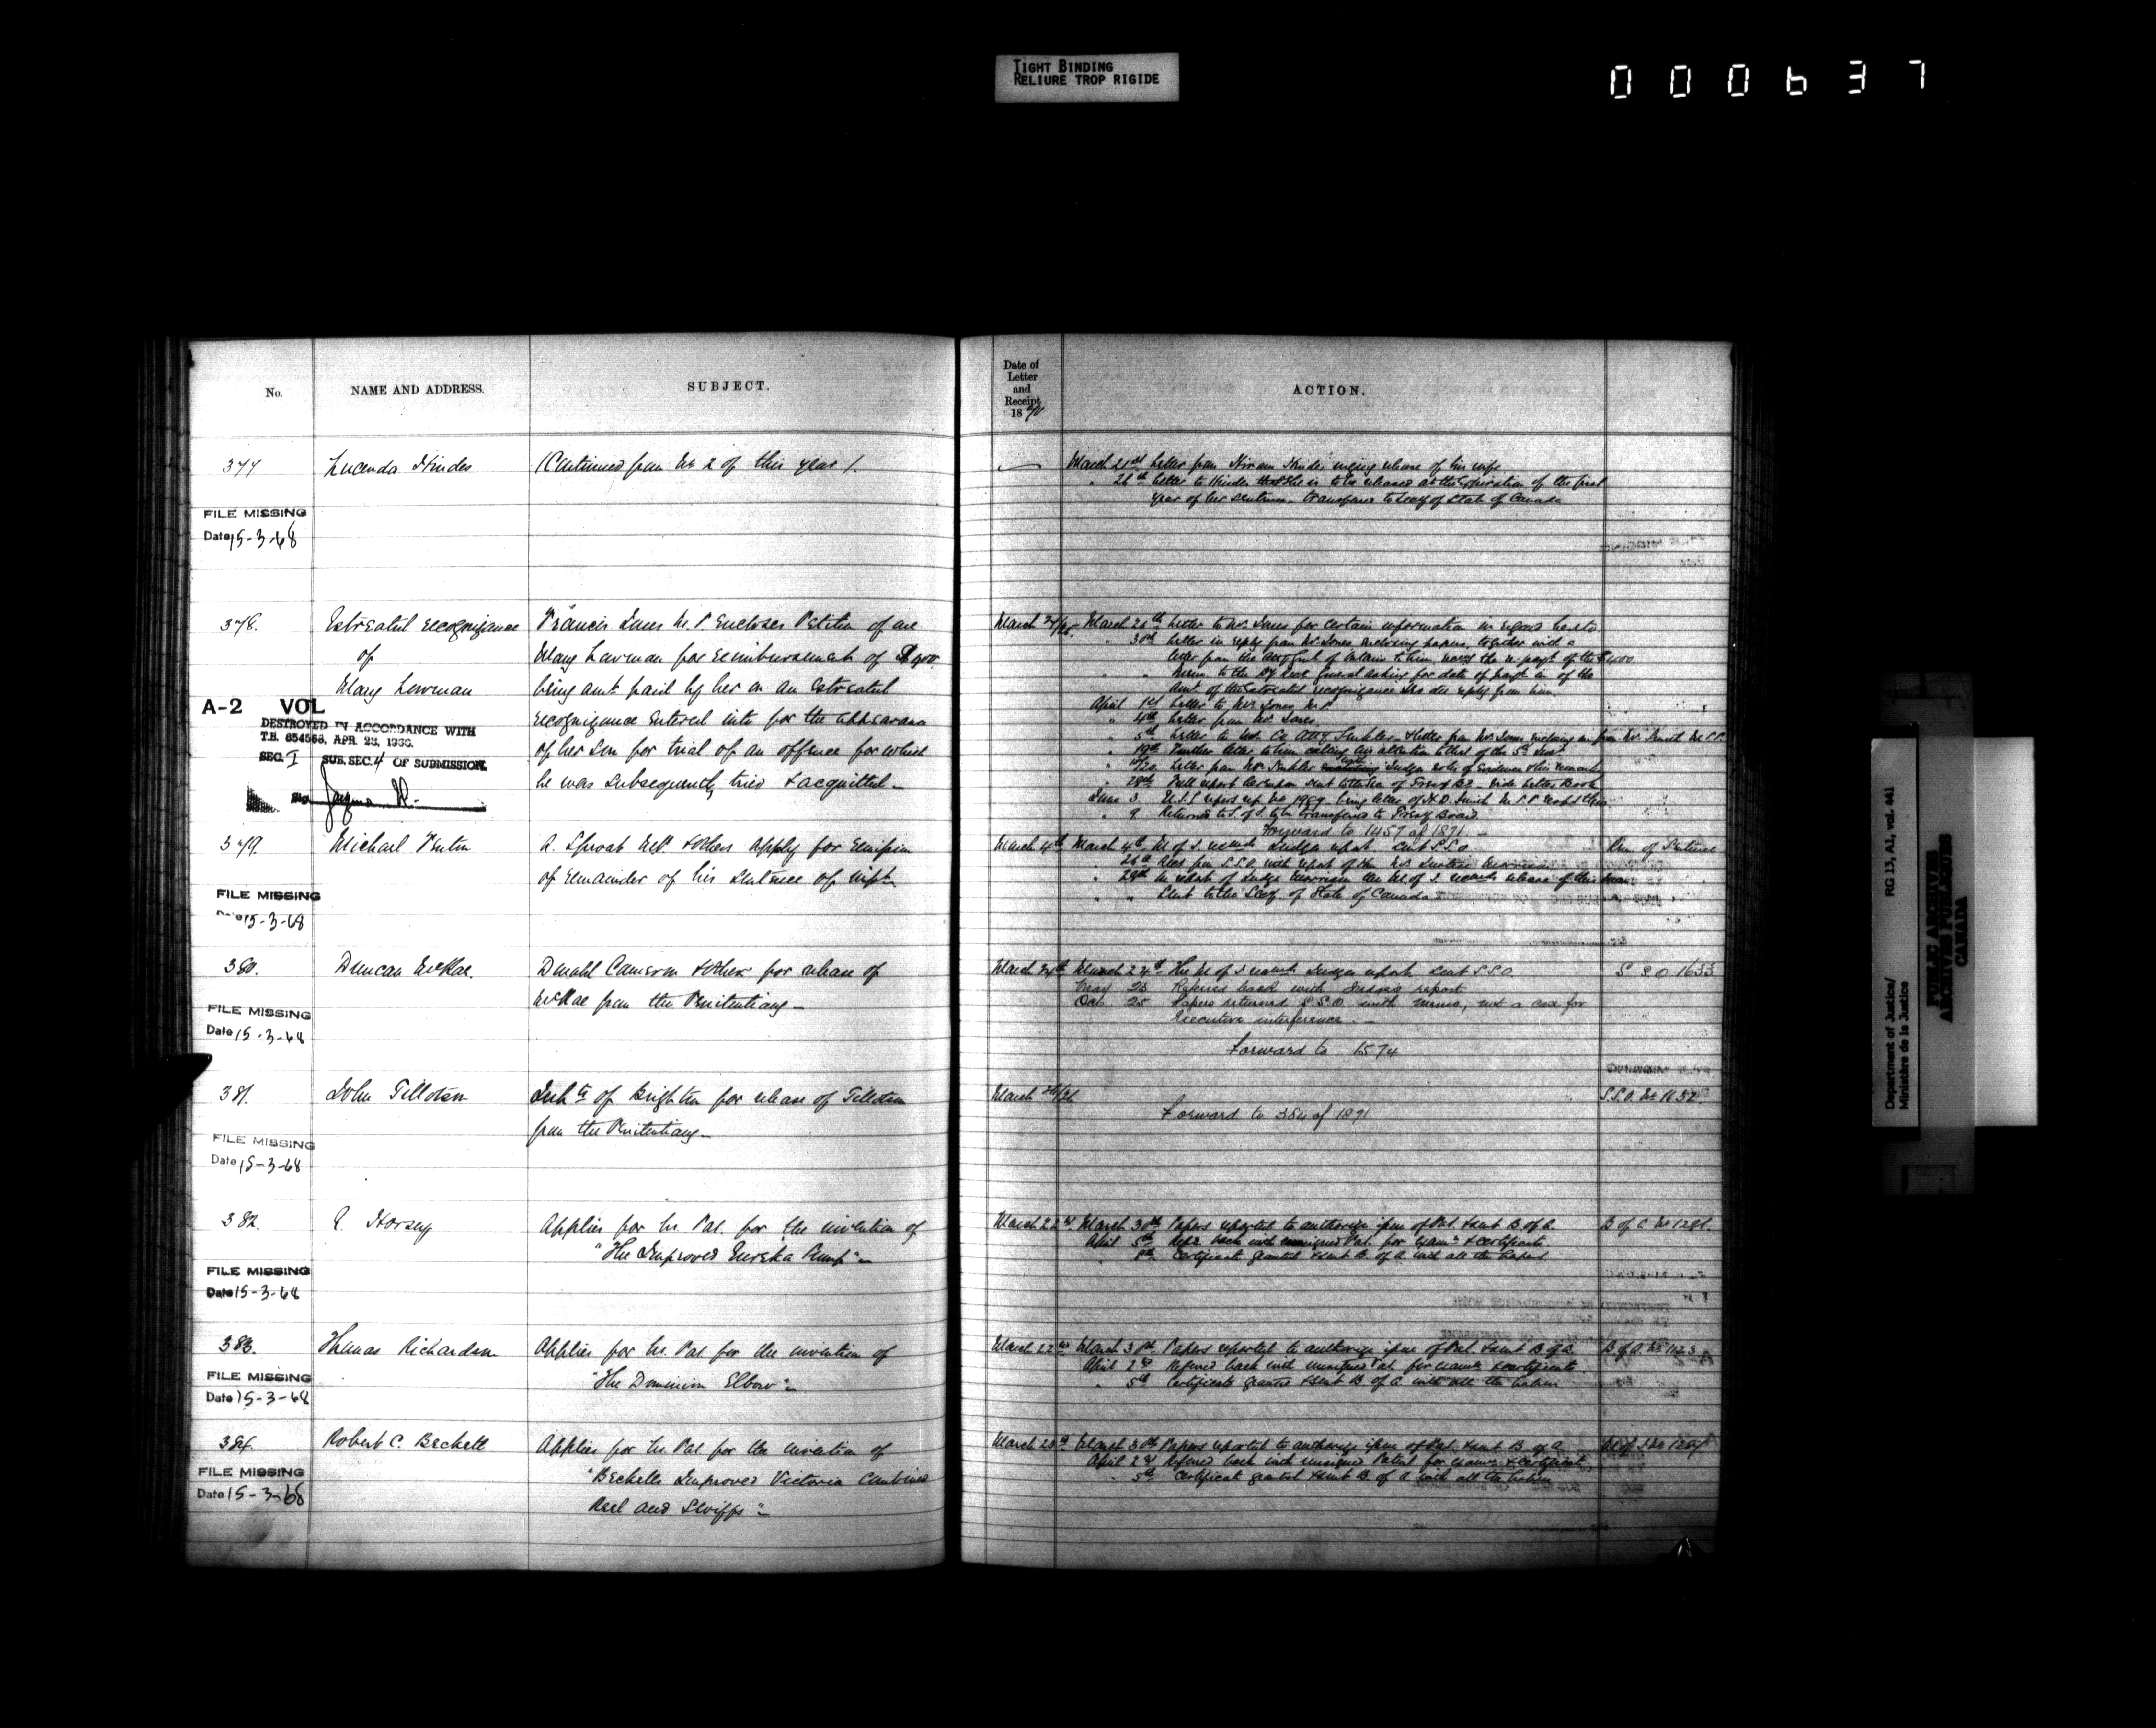 TIGHT BINDING
RELIURE TROP RIGIDE
000637
No.
NAME AND ADDRESS.
SUBJECT.
Date of
Letter
and
Receipt
1870
ACTION.
377
Lucenda Hindes
(Continued from No 2 of this year).
March 21st Letter from Hiram Hindes urging release of his wife
" 26th Letter to Hindes that she is to be released at the expiration of the first
year of her sentence. transferred to Secy of State of Canada
FILE MISSING
Date 15-3-68
378.
Estreated recognizance
of
Mary Lowman
Francis Jones M.P. Encloses Petition of one
Mary Lowman for reimbursement of $400
being amt. paid by her on an Estreated
recognizance entered into for the appearance
of her son for trial of an offence for which
he was subsequently tried & acquitted.
March 26th Letter to Mr. Jones for certain information in regard hereto
" 30th Letter in reply from Mr Jones enclosing papers, together with a
letter from the
asking for date of paymt in of the
Amt. of the Estreated recognizance also his reply from him.
April 1st Letter to Mr Jones M.P.
" 4th Letter from Mr. Jones
" 5th Letter to
" 19th Further letter to him calling his attention to that of the 5th Inst
" 28th Full report hereupon sent to the Sec of Treasy Bd - Vide Letter Book
June 3.
" 9 Returned to S. of S. to be transferred to Treasy Board
Forward to 1457 of 1871. -
A-2 VOL
DESTROYED IN ACCORDANCE WITH
T.B. 654568, APR. 23, 1966.
SEC. I SUB. SEC. 4 OF SUBMISSION.
379.
Michael
A. Sproat M.P. & others apply for remission
of remainder of his sentence of impt.
March 4th March 4th M of J. requests Judges report sent S.S.O.
Rem of Sentence
" 29th In report of Judge Morrison the M. of J. recommends release of this man
" " Sent to the Secy. of State of Canada
FILE MISSING
Date 15-3-68
380.
Duncan McRae.
Donald Cameron & others for release of
McRae from the Penitentiary -
March 24th March 24th The M of J requests Judges report sent S.S.O.
S S O 1633
May 23 Referred back with Judges report
Oct 25 Papers returned S.S.O. with memo, not a case for
Executive interference. -
Forward to 1574
FILE MISSING
Date 15-3-68
381.
John Tillotson
Inhts of Brighton for release of Tillotson
from the Penitentiary -
March
S.S.O. No 1632.
Forward to 384 of 1871.
FILE MISSING
Date 15-3-68
382.
Horsey
Applies for Lr. Pat. for the invention of
"The Improved Eureka Pump" -
March 22d. March 30th Papers reported to authorize issue of Pat. & sent B. of A.
B of A No 1281.
April 5th Refd. back with unsigned Pat. for exam. & certificate
8th Certificate granted & sent B. of A with all the papers
FILE MISSING
Date 15-3-68
383.
Thomas Richardson
Applies for Lr. Pat for the invention of
"The Dominion Elbow" -
March 22nd March 30th. Papers reported to authorize issue of Pat. & sent B of A.
B of A. No 1123
April 2nd Referred back with unsigned Pat. for examn. & certificate
" 5th Certificate granted & sent B. of A with all the papers
FILE MISSING
Date 15-3-68
384.
Robert C. Beckett
Applies for Lr. Pat for the invention of
"Becketts Improved Victoria Combined
Reel and Swifts" -
March 23d March 30th Papers reported to authorize issue of Pat. & sent B of A.
April 2d Referred back with unsigned Patent for examn. & certificate
" 5th Certificate granted & sent B. of A with all the papers
FILE MISSING
Date 15-3-68
Department of Justice/
Ministère de la Justice
RG 13, A1, vol. 441
PUBLIC ARCHIVES
ARCHIVES PUBLIQUES
CANADA